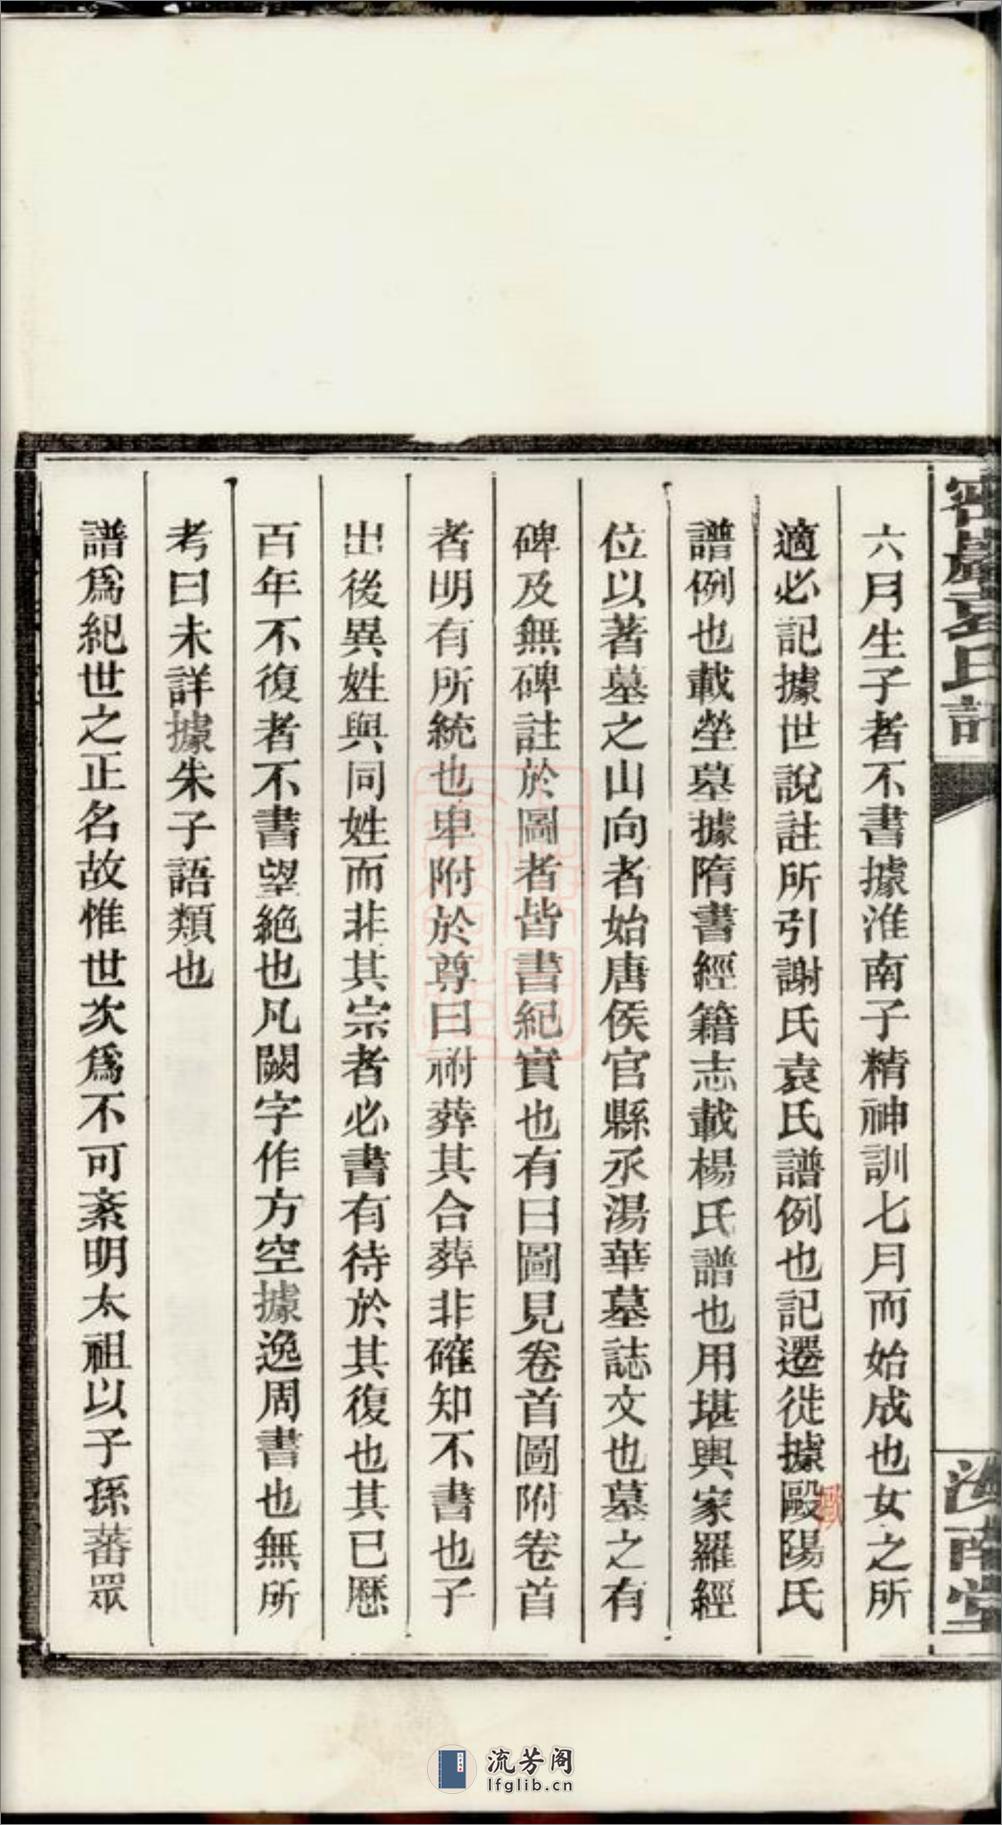 六月生子者不書據淮南子精神訓七月而始成也女之所
適必記據世說註所引謝氏袁氏譜例也記遷徙據毆陽氏
譜例也載塋墓據隋書經籍志載楊氏譜也用堪輿家羅經
位以著墓之山向者始唐侯官縣丞湯華墓誌文也墓之有
碑及無碑註於圖者皆書紀實也有曰圖見卷首圖附卷首
者明有所統也卑附於尊曰祔葬其合葬非確知不書也子
出後異姓與同姓而非其宗者必書有待於其復也其已歷
百年不復者不書望絶也凡闕字作方空據逸周書也無所
考曰未詳據朱子語類也
譜爲紀世之正名故惟世次爲不可紊明太祖以子孫蕃眾
流芳阁
lfglib.cn